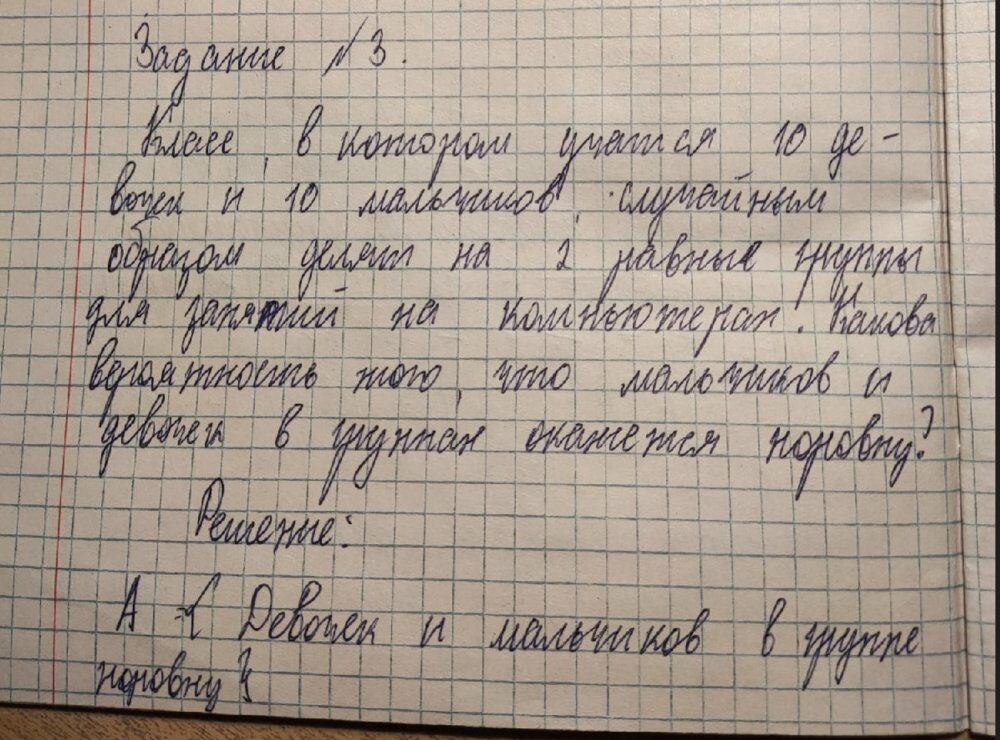 Задание №3.
Класс, в котором учатся 10 де-
вочек и 10 мальчиков, случайным
образом делят на 2 равные группы
для занятий на компьютерах. Какова
вероятность того, что мальчиков и
девочек в группах окажется поровну?
Решение:
A = { Девочек и мальчиков в группе
поровну }